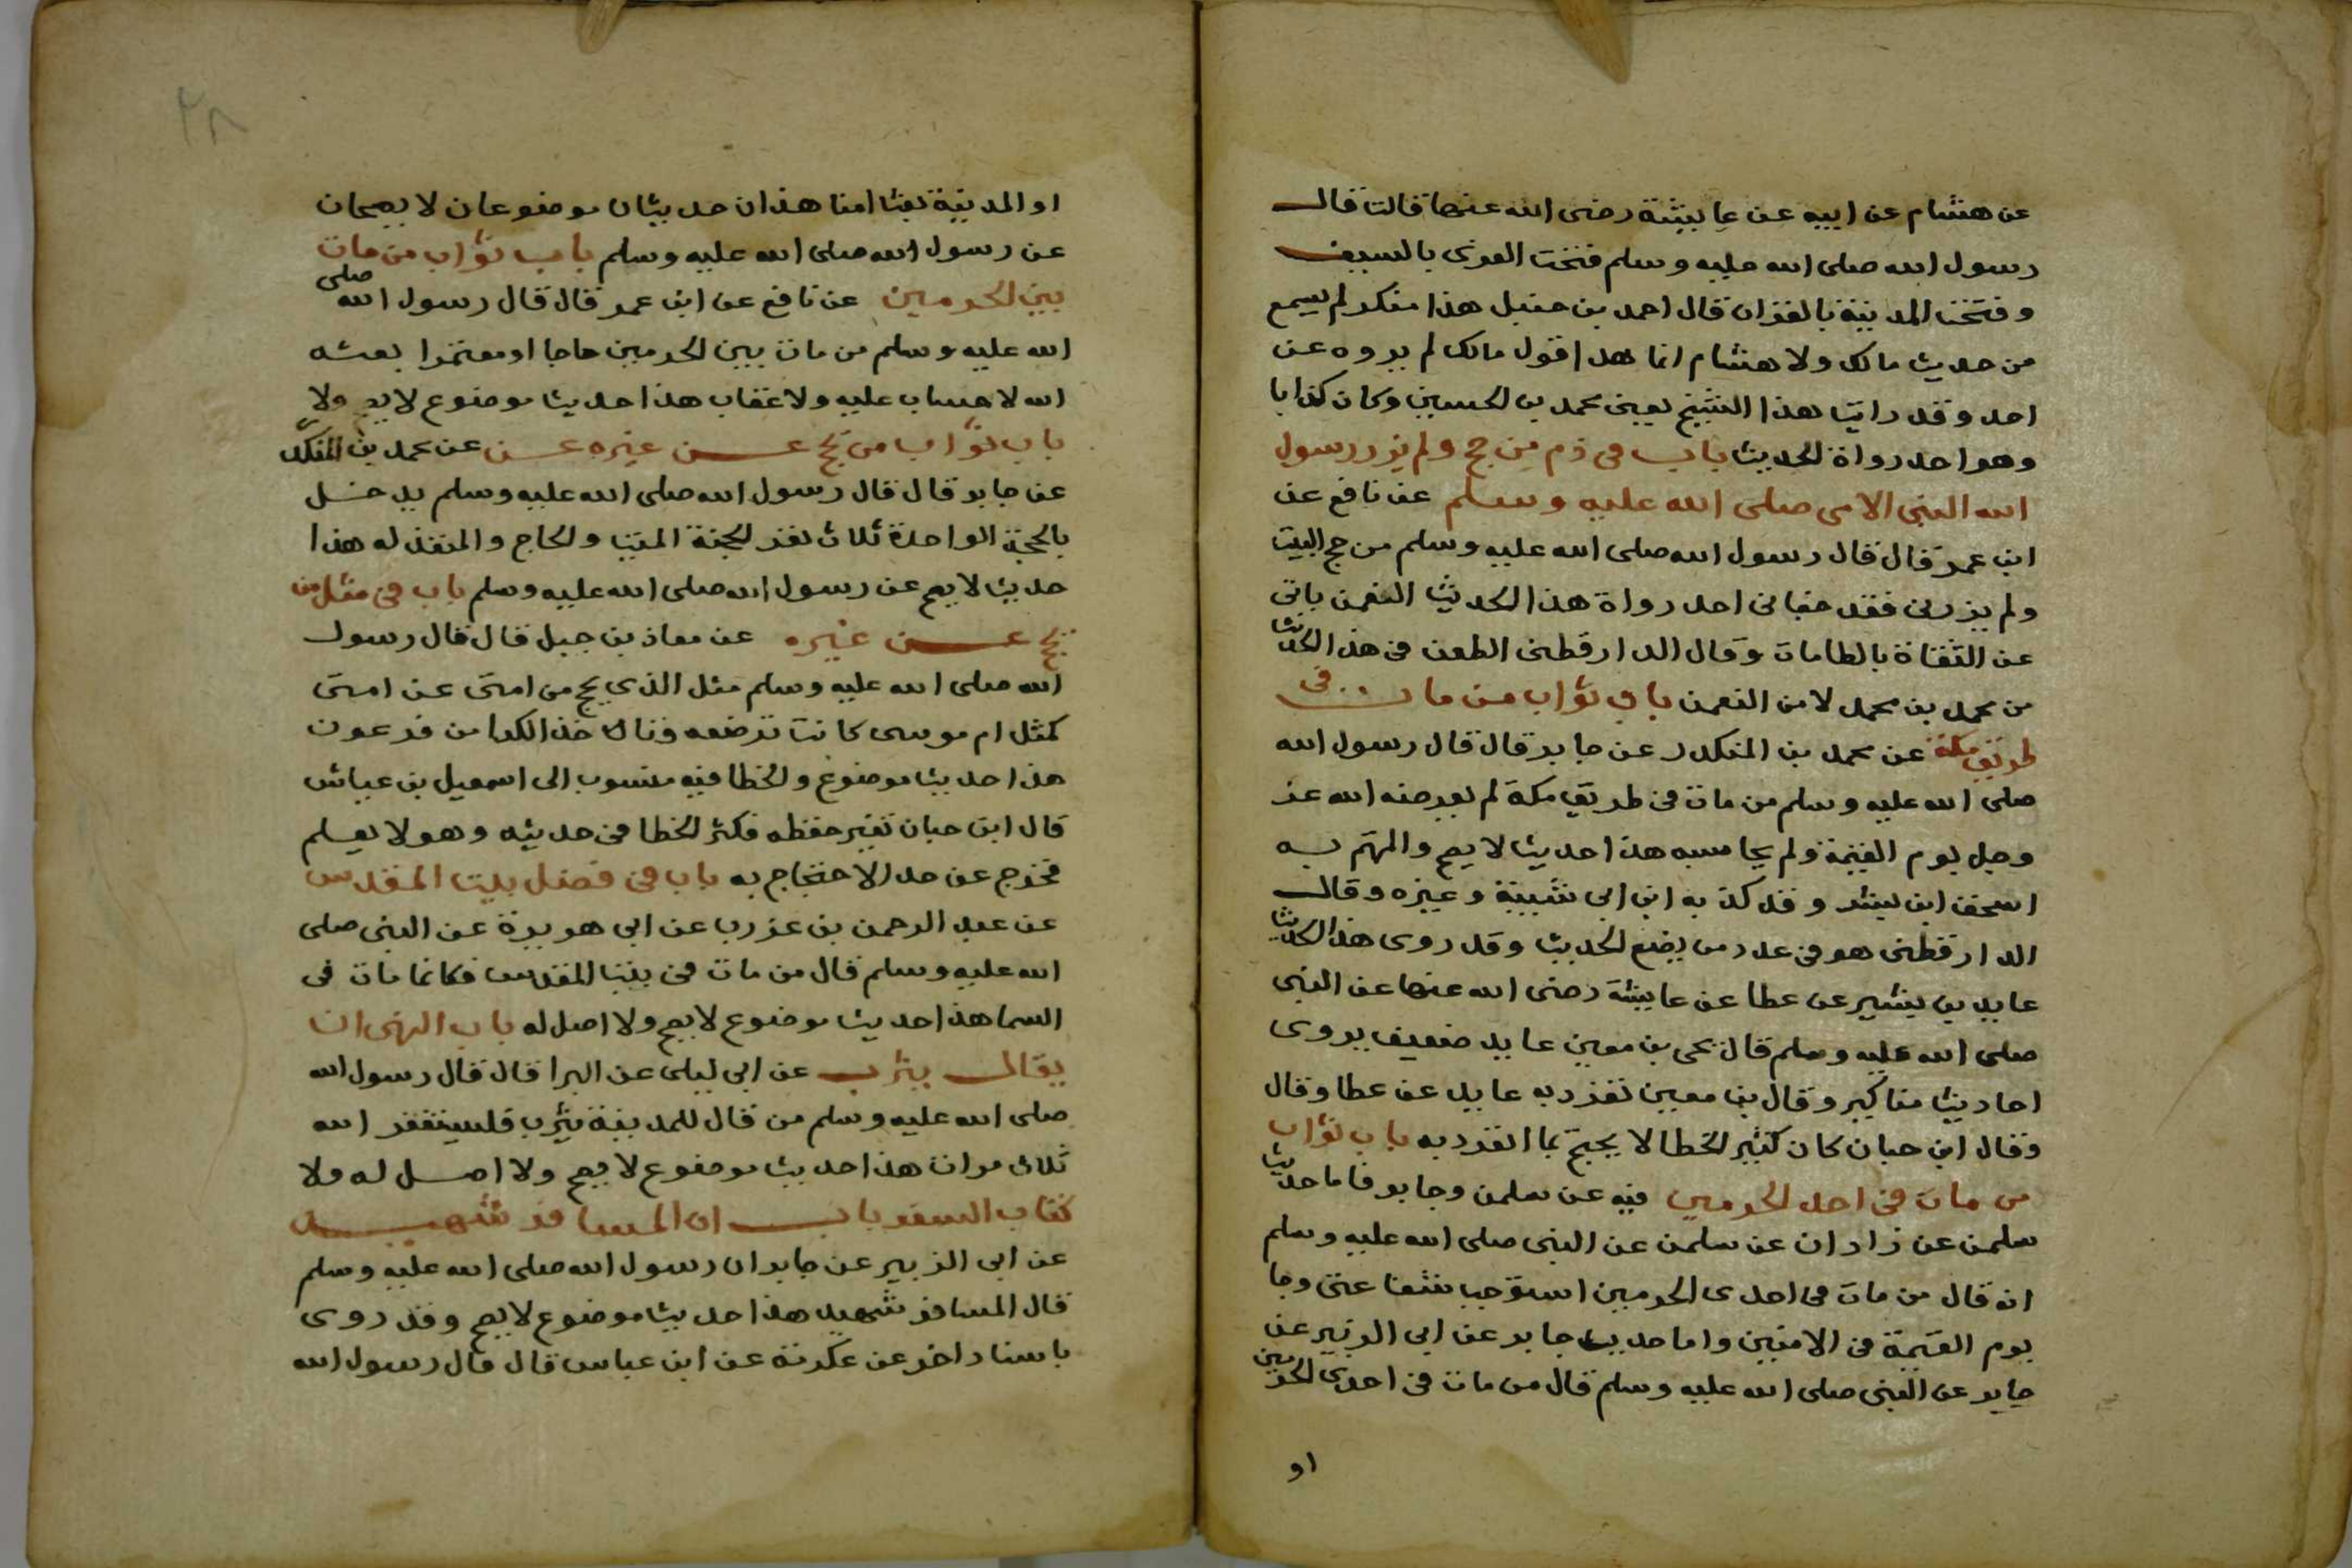 عن هشام عن ابيه عن عايشة رضى الله عنها قالت قال
رسول الله صلى الله عليه وسلم فتحت القرى بالسيف
وفتحت المدينة بالقران قال احمد بن حنبل هذا منكر لم يسمع
من حديث مالك ولا هشام انما هذا قول مالك لم يروه عن
احد وقد رايت هذا الشيخ يعنى محمد بن الحسين وكان كذابا
وهو احد رواة الحديث باب فى ذم من حج ولم يزر رسول
الله النبى الامى صلى الله عليه وسلم عن نافع عن
ابن عمر قال قال رسول الله صلى الله عليه وسلم من حج البيت
ولم يزرنى فقد جفانى احد رواة هذا الحديث النعمن ياتى
عن الثقاة بالطامات وقال الدارقطنى الطعن فى هذا الحديث
من محمد بن محمد لا من النعمن باب ثواب من مات فى
طريق مكة عن محمد بن المنكدر عن جابر قال قال رسول الله
صلى الله عليه وسلم من مات فى طريق مكة لم يعرضه الله عز
وجل يوم القيمة ولم يحاسبه هذا حديث لا يصح والمتهم به
اسحق ابن بشر وقد كذبه ابن ابى شيبة وغيره وقال
الدارقطنى هو فى عدد من يضع الحديث وقد روى هذا الحديث
عايد بن بشير عن عطا عن عايشة رضى الله عنها عن النبى
صلى الله عليه وسلم قال يحى بن معين عايد ضعيف يروى
احاديث مناكير وقال بن معين تفرد به عايد عن عطا وقال
وقال ابن حبان كان كثير الخطا لا يحتج بما انفرد به باب ثواب
من مات فى احد الحرمين فيه عن سلمن وجابر فاما حديث
سلمن عن زادان عن سلمن عن النبى صلى الله عليه وسلم
انه قال من مات فى احدى الحرمين استوجب شفاعتى وجا
يوم القيمة فى الامنين واما حديث جابر عن ابى الزبير عن
جابر عن النبى صلى الله عليه وسلم قال من مات فى احدى الحرمين
او
او المدينة بعث امنا هذان حديثان موضوعان لا يصحان
عن رسول الله صلى الله عليه وسلم باب ثواب من مات
بين الحرمين عن نافع عن ابن عمر قال قال رسول الله صلى
الله عليه وسلم من مات بين الحرمين حاجا او معتمرا بعثه
الله لا حساب عليه ولا عقاب هذا حديث موضوع لا يصح ولا
باب ثواب من يحج عن غيره عن محمد بن المنكدر
عن جابر قال قال رسول الله صلى الله عليه وسلم يدخل
بالحجة الواحدة ثلاث نفر الجنة الميت والحاج والمنفذ له هذا
حديث لا يصح عن رسول الله صلى الله عليه وسلم باب فى مثل من
يحج عن غيره عن معاذ بن جبل قال قال رسول
الله صلى الله عليه وسلم مثل الذى يحج من امتى عن امتى
كمثل ام موسى كانت ترضعه وتاخذ الكرا من فرعون
هذا حديث موضوع والخطا فيه منسوب الى اسمعيل بن عياش
قال ابن حبان تغير حفظه فكثر الخطا فى حديثه وهو لا يعلم
فخرج عن حد الاحتجاج به باب فى فضل بيت المقدس
عن عبد الرحمن بن عزرب عن ابى هريرة عن النبى صلى
الله عليه وسلم قال من مات فى بيت المقدس فكانما مات فى
السما هذا حديث موضوع لا يصح ولا اصل له باب النهى ان
يقال يثرب عن ابى ليلى عن البرا قال قال رسول الله
صلى الله عليه وسلم من قال للمدينة يثرب فليستغفر الله
ثلاث مرات هذا حديث موضوع لا يصح ولا اصل له ولا
كتاب السفر باب ان المسافر شهيد
عن ابى الزبير عن جابر ان رسول الله صلى الله عليه وسلم
قال المسافر شهيد هذا حديث موضوع لا يصح وقد روى
باسناد اخر عن عكرمة عن ابن عباس قال قال رسول الله
٢٨